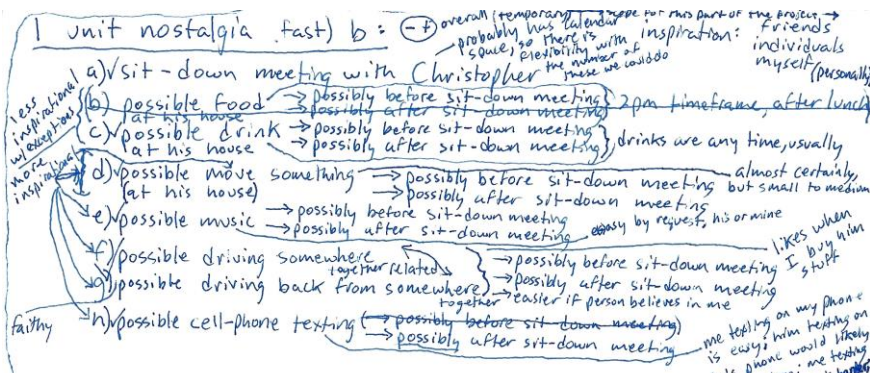 1 unit nostalgia fast) b: (-f) overall (temporary)
scope for this part of the project →
probably has calendar
space, so there is
flexibility with
the number of
these we could do
inspiration: friends
individuals
myself
(personally)
a)√ sit-down meeting with Christopher
less
inspirational
w/exceptions
(b) possible food → possibly before sit-down meeting
(at his house → possibly after sit-down meeting
2pm timeframe, after lunch
c)√ possible drink → possibly before sit-down meeting
(at his house) → possibly after sit-down meeting
drinks are any time, usually
more
inspirational
d)√ possible move something → possibly before sit-down meeting
(at his house) → possibly after sit-down meeting
almost certainly,
but small to medium
e)√ possible music → possibly before sit-down meeting
→ possibly after sit-down meeting
easy by request, his or mine
f)√ possible driving somewhere
together related
g)√ possible driving back from somewhere
together
→ possibly before sit-down meeting
→ possibly after sit-down meeting
→ easier if person believes in me
likes when
I buy him
stuff
faithy
h)√ possible cell-phone texting (→ possibly before sit-down meeting)
→ possibly after sit-down meeting
me texting on my phone
is easy; him texting on
phone would likely
me texting